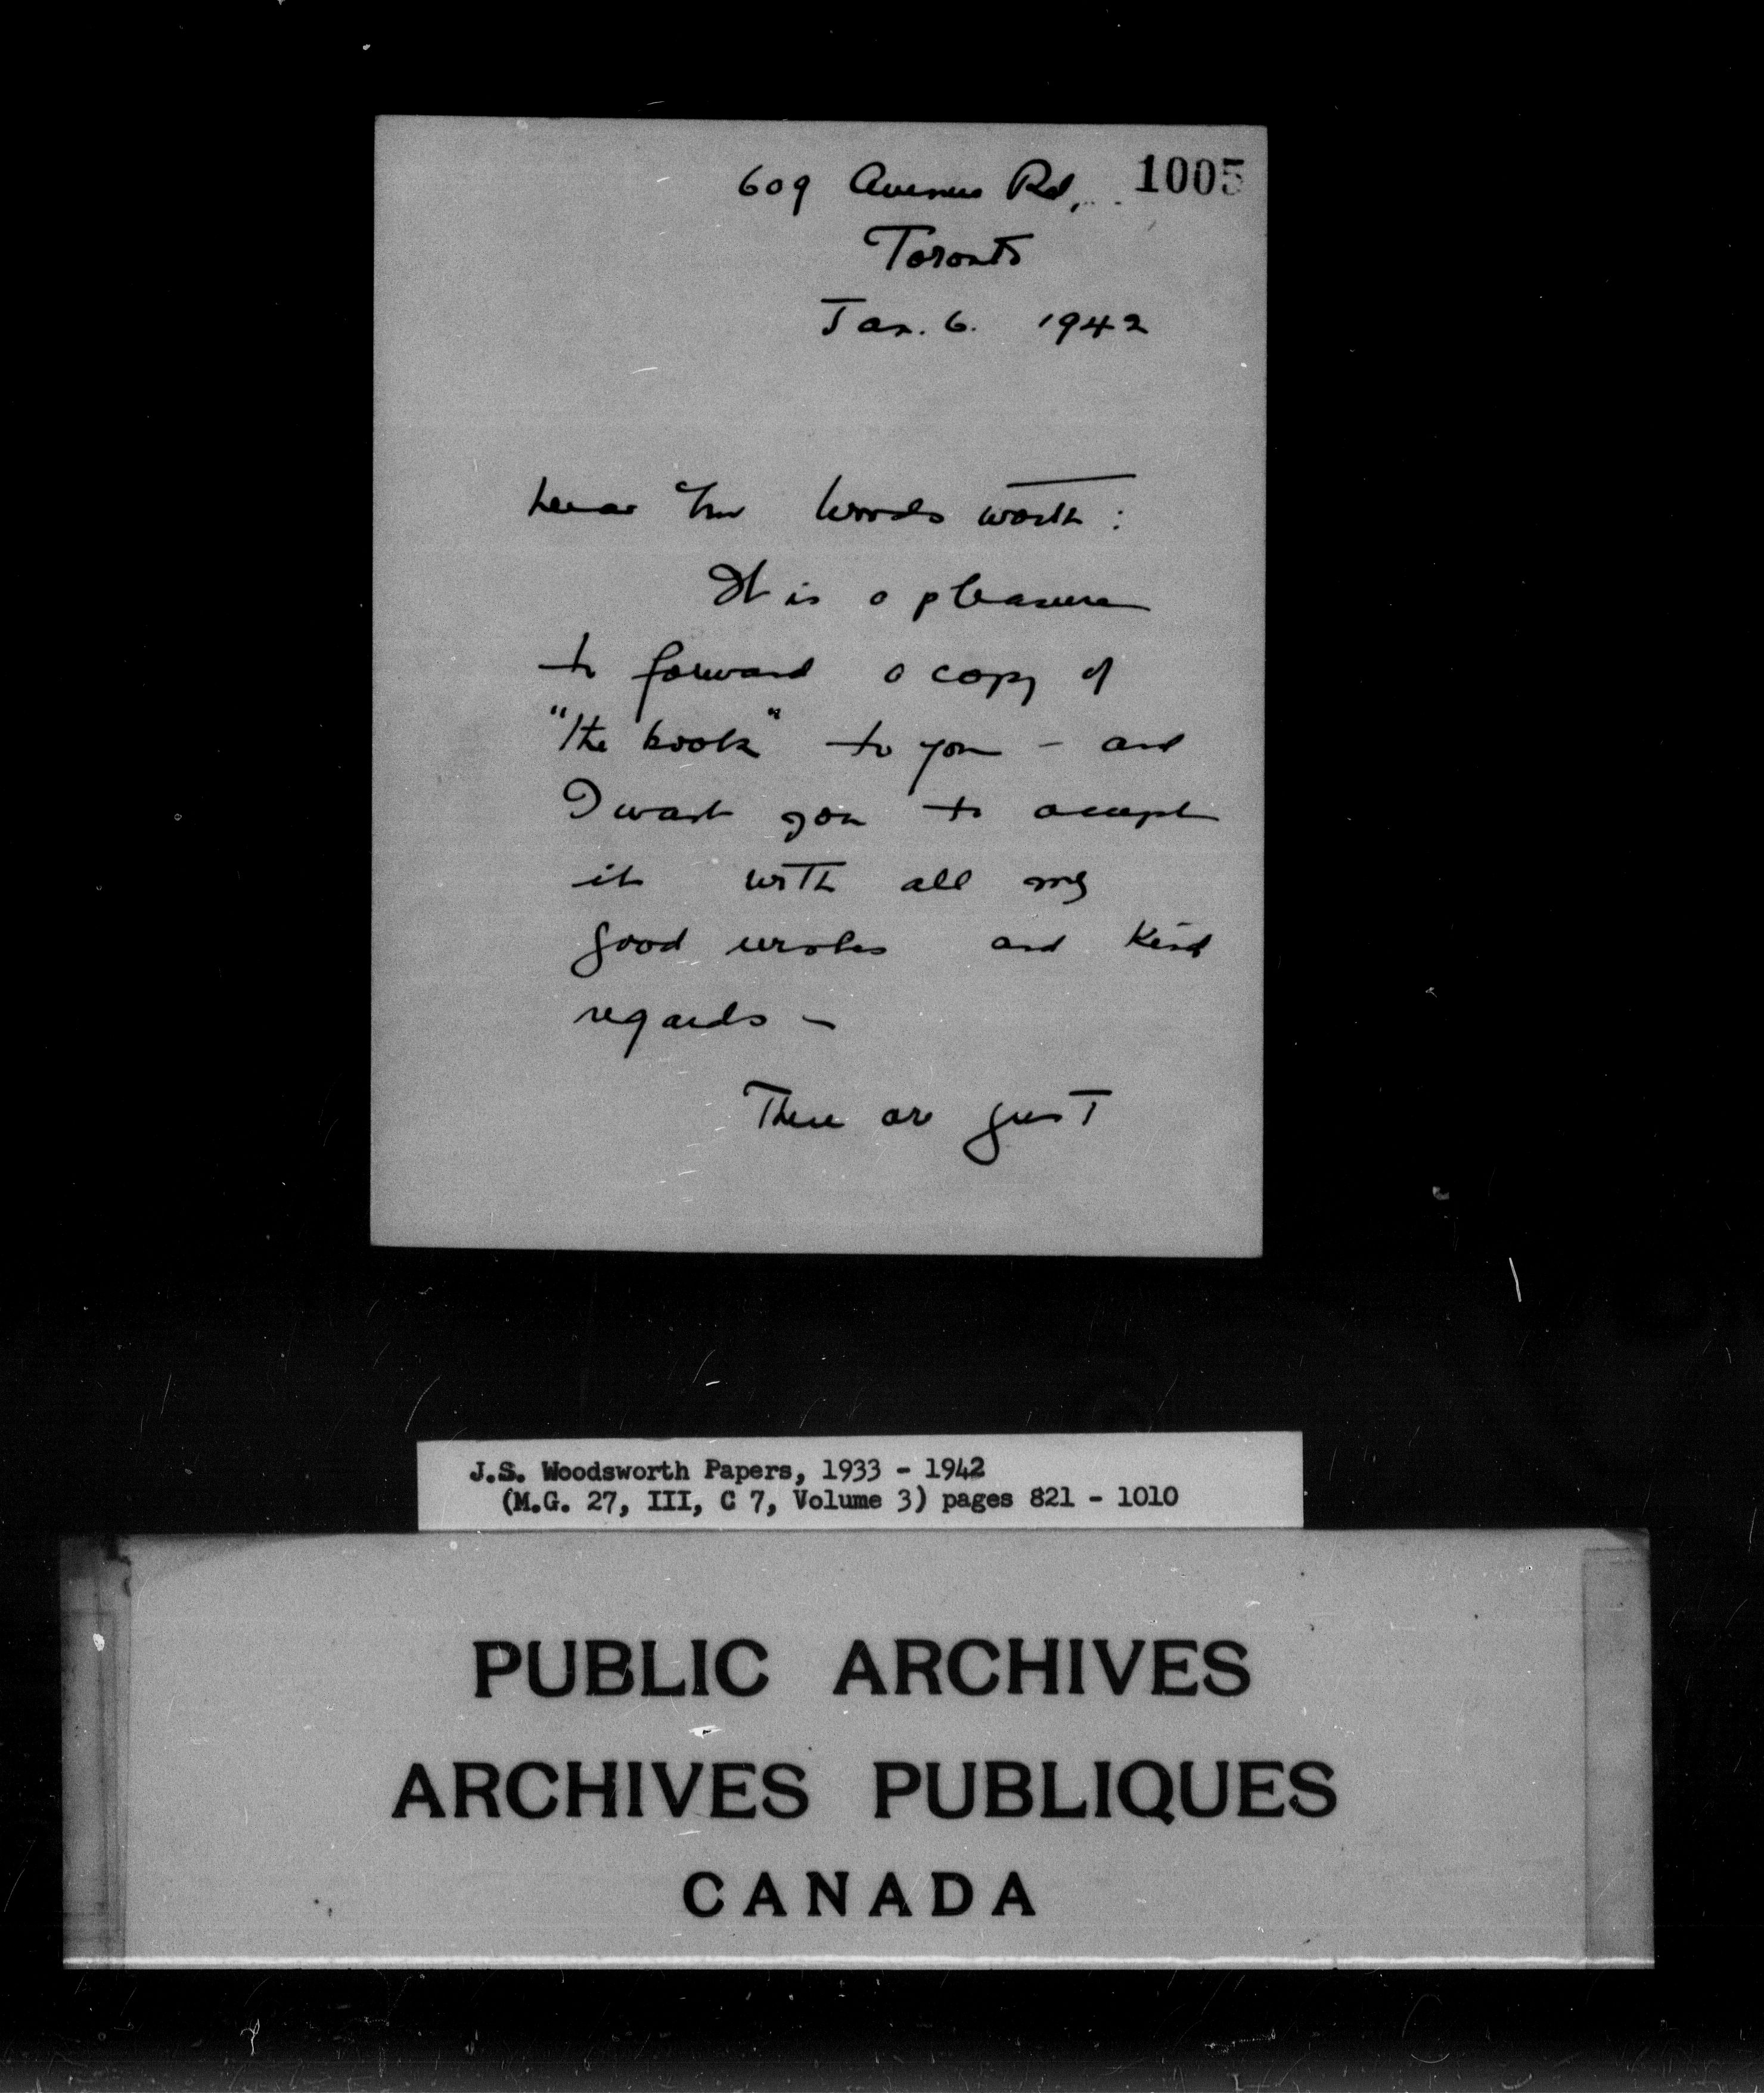 609 Avenue Rd, 1005
Toronto
Jan. 6. 1942
Dear Mr Woodsworth:
It is a pleasure
to forward a copy of
"the book" to you - and
I want you to accept
it with all my
good wishes and kind
regards -
There are just
J.S. Woodsworth Papers, 1933 - 1942
(M.G. 27, III, C 7, Volume 3) pages 821 - 1010
PUBLIC ARCHIVES
ARCHIVES PUBLIQUES
CANADA